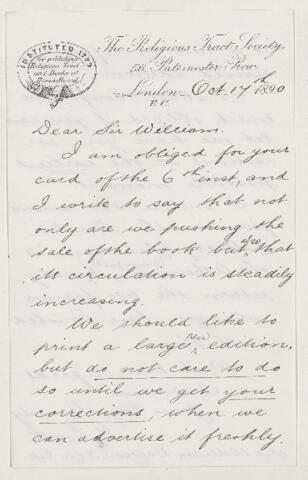 INSTITUTED 1799
for publishing
Religious Tracts
and Books at
The Religious Tract Society,
56, Paternoster Row,
London Oct. 17th 1890
E.C.
Dear Sir William.
I am obliged for your
card of the 6th inst, and
I write to say that not
only are we pushing the
sale of the book but also that
its circulation is steadily
increasing.
We should like to
print a large new edition,
but do not care to do
so until we get your
corrections, when we
can advertise it freshly.